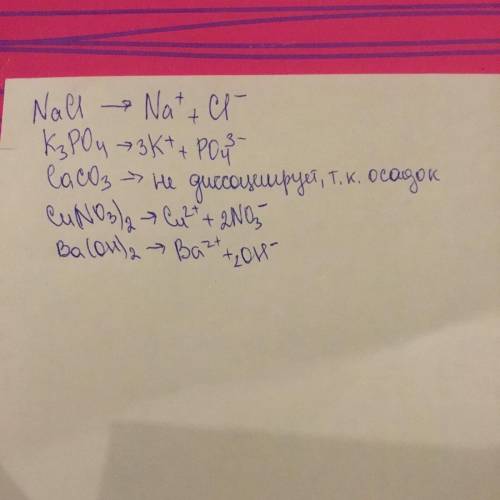 NaCl → Na⁺ + Cl⁻
K₃PO₄ → 3K⁺ + PO₄³⁻
CaCO₃ → не диссоциирует, т.к. осадок
Cu(NO₃)₂ → Cu²⁺ + 2NO₃⁻
Ba(OH)₂ → Ba²⁺ + 2OH⁻